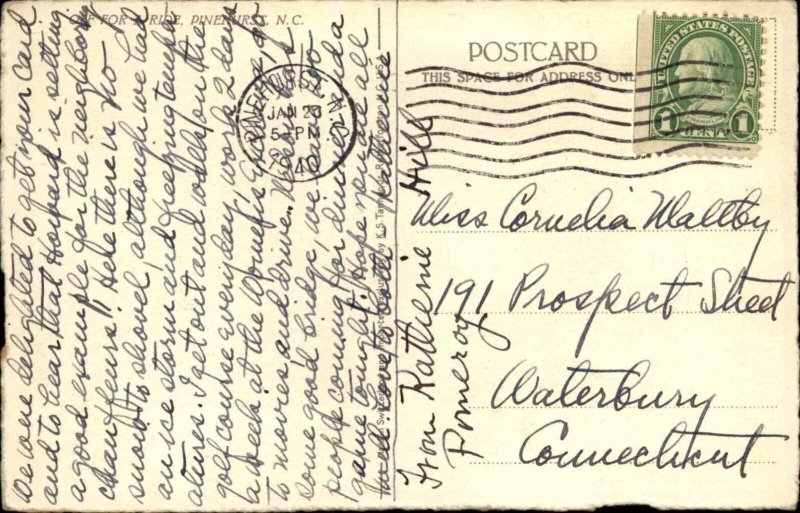 OFF FOR A RIDE, PINEHURST, N.C.
We were delighted to get your card
and to hear that Howard is setting
a good example for the neighboring
chauffeurs!! Here there is no
snow to shovel, although we had
an ice storm and freezing temper-
atures. I get out and walk on the
golf course every day, work 2 days
a week at the Women's Exchange, go
to movies and drive.
some good bridge, we have two
people coming for dinner and a
game tonight. Hope you're all
well. Love to all Katherine
From Katherine Hill
Pomeroy
POSTCARD
THIS SPACE FOR ADDRESS ONLY
PINEHURST N.C.
JAN 23
5-PM
1940
UNITED STATES POSTAGE
FRANKLIN
1 CENT 1
Miss Cornelia Maltby
191 Prospect Street
Waterbury
Connecticut